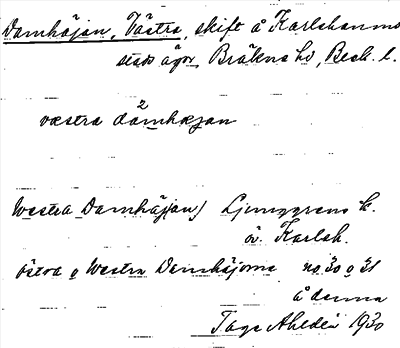 Damhäjan, Västra, skift å Karlshamns
stads ägor, Bräkne hd, Blek. l.
västra da2mhæjan
Westra Damhäj(an) Ljunggrens k.
öv. Karlsh.
Östra o Westra Damhäjorna no 30 o 31
å denna
Tage Ahldén 1930